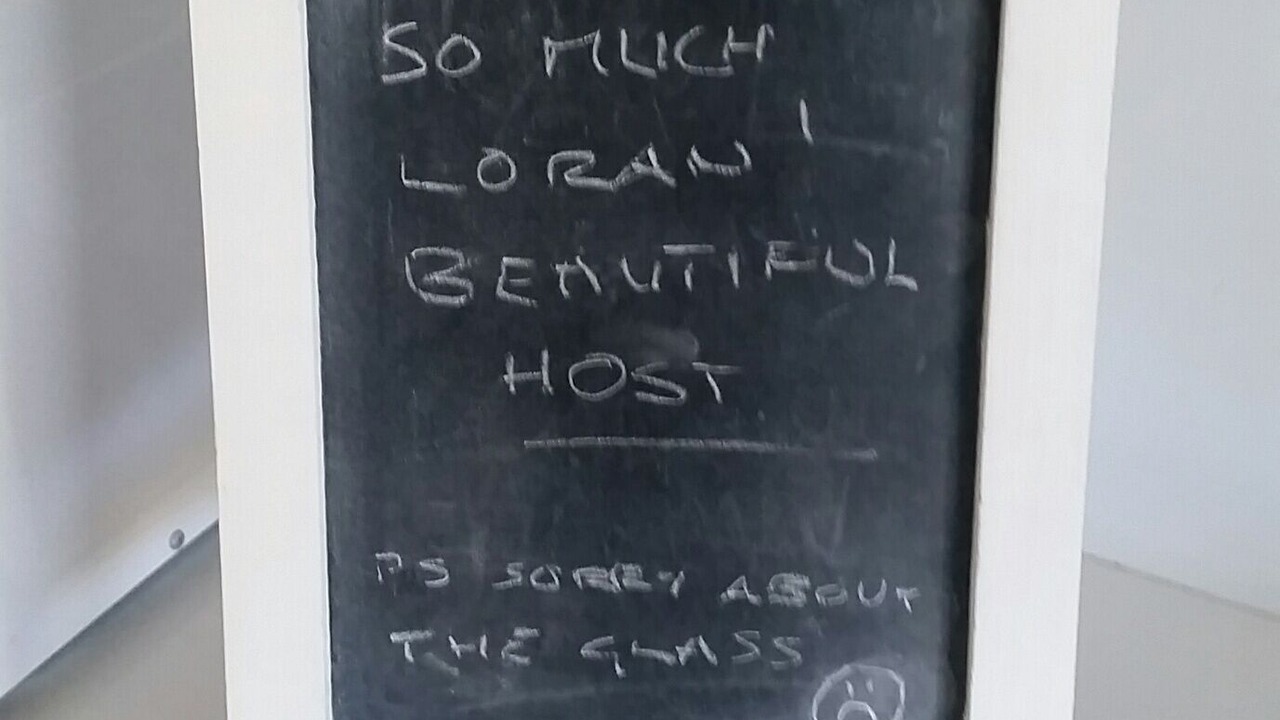 SO MUCH
LORAN
BEAUTIFUL
HOST
PS SORRY ABOUT
THE GLASS